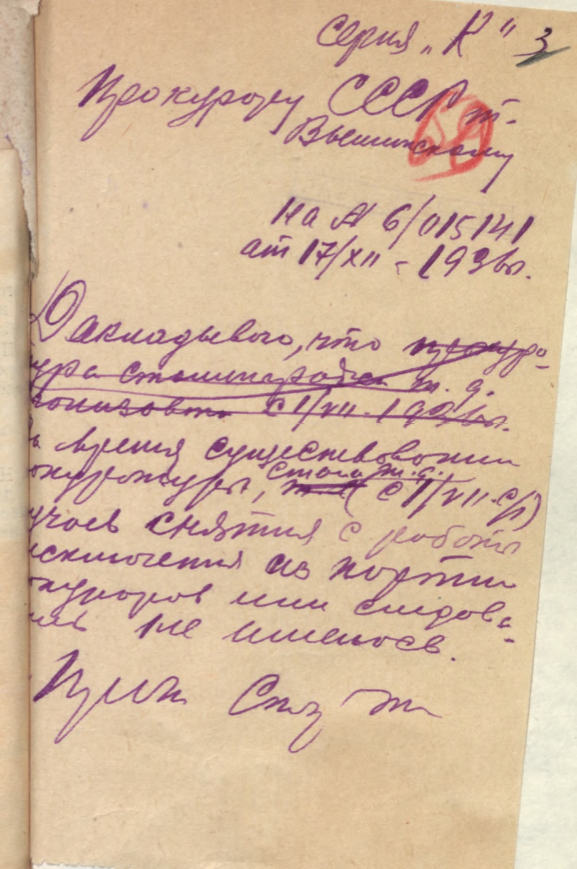 серия „К" 3
Прокурору СССР т.
Вышинскому
59
на № 6/015141
от 17/XII - 1936г.
Докладываю, что прокура-
тура сталингр. ж. д.
с 1/VII - 1936г.
время существования
окуратуры, стал. ж. д. (с 1/VII с/г)
учаев снятия с работы
исключения из партии
окуроров или следова-
лей не имелось.
Прок